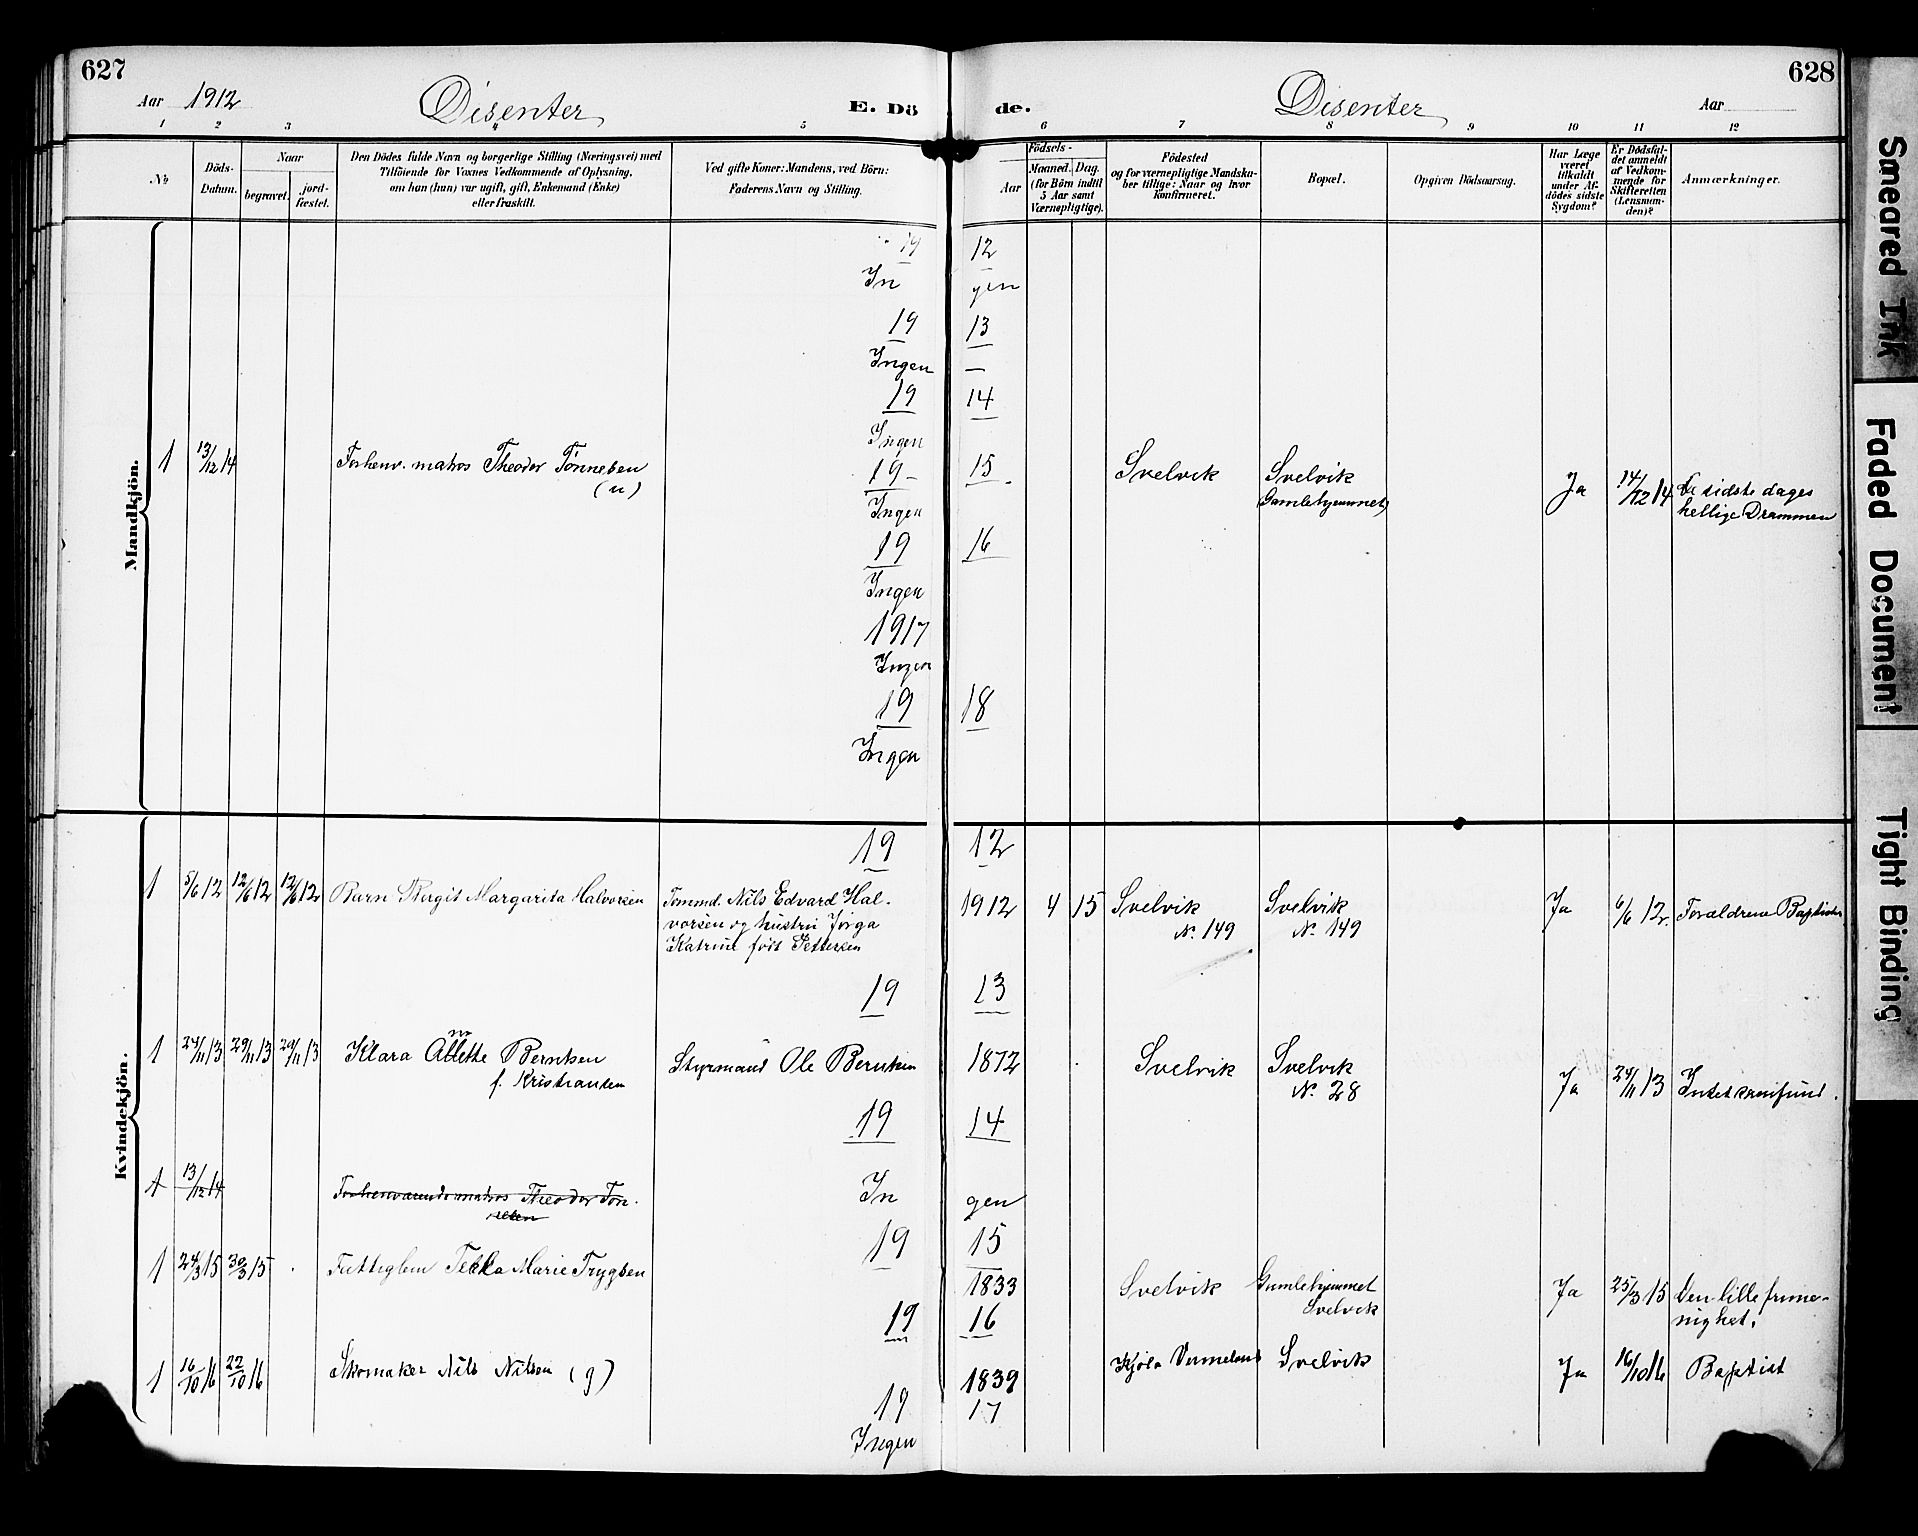 627
628
Aar 1912
Disenter
E. Dö
de.
Disenter
Aar
1 2 3 4 5 6 7 8 9 10 11 12
No
Döds-
Datum.
Naar
begravet.
jord-
fæstet.
Den Dödes fulde Navn og borgerlige Stilling (Næringsvei) med
Tilföiende for Voxnes Vedkommende af Oplysning,
om han (hun) var ugift, gift, Enkemand (Enke)
eller fraskilt.
Ved gifte Koner: Mandens, ved Börn:
Faderens Navn og Stilling.
Födsels-
Aar
Maaned. Dag.
(for Börn indtil
5 Aar samt
Værnepligtige).
Födested
og for værnepligtige Mandska-
ber tillige: Naar og hvor
konfirmeret.
Bopæl.
Opgiven Dödsaarsag.
Har Læge
været
tilkaldt
under Af-
dödes sidste
Sygdom?
Er Dödsfal-
det anmeldt
af Vedkom-
mende for
Skifteretten
(Lensman-
den)?
Anmærkninger.
Mandkjön.
19 12
In gen
19 13
Ingen
19 14
Ingen
1 13/12 14 Forhenv. matros Theodor Tönnesen
(u)
Svelvik
Svelvik
(Gamlehjemmet)
Ja 14/12 14 De sidste dages
hellige Drammen
19 15
Ingen
19 16
Ingen
1917
Ingen
19 18
Ingen
Kvindekjön.
19 12
1 5/6 12 12/6 12 12/6 12 Barn Birgit Margarita Halvorsen
Tömmd. Nils Edvard Hal-
vorsen og hustru Jörga
Katrine født Pettersen
1912 4 15 Svelvik
N. 149
Svelvik
N. 149
Ja 6/6 12. Forældrene Baptister
19 13
1 24/11 13 29/11 13 29/11 13 Klara Allette Berntsen
f. Kristiansen
Styrmand Ole Berntsen
1872 Svelvik
Svelvik
N. 28
Ja 24/11 13 Intet samfund.
19 14
1 13/12 14 Forhenværende matros Theodor Tön-
nesen
In gen
19 15
1 24/3 15 30/3 15 Fattiglem Tekla Marie Trygsen
1833 Svelvik
Gamlehjemmet
Svelvik
Ja 25/3 15 Den lille frime-
nighet.
19 16
1 16/10 16 22/10 16 Skomaker Nils Nilsen (g)
1839 Vermeland Svelvik Ja 16/10 16 Baptist
19 17
Ingen
Smeared Ink
Faded Document
Tight Binding